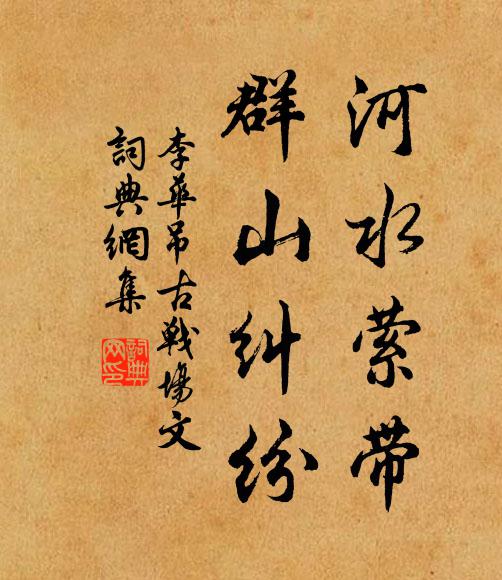 河水萦带
群山纠纷
李華吊古戰場文
詞典網集
詞典
网印